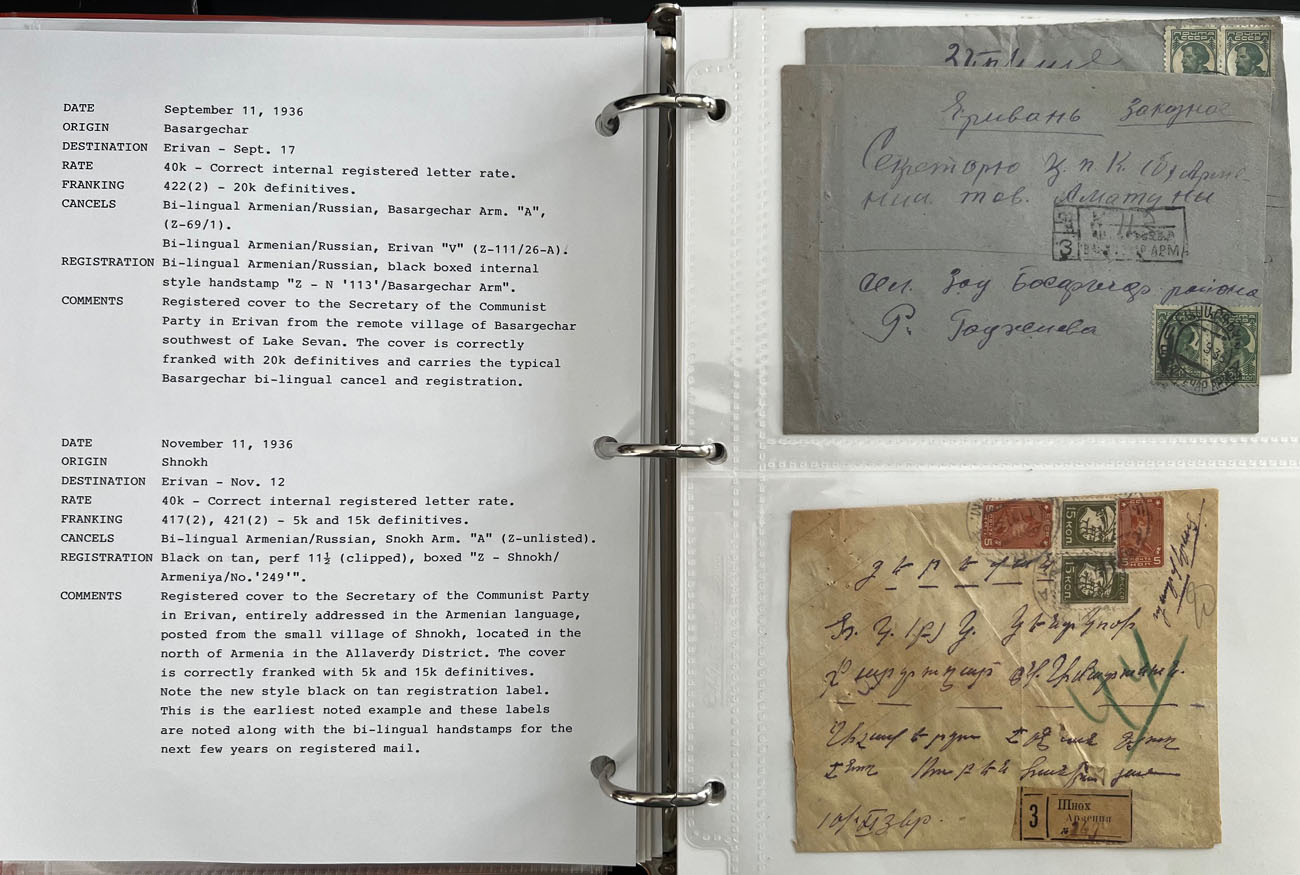 DATE September 11, 1936
ORIGIN Basargechar
DESTINATION Erivan - Sept. 17
RATE 40k - Correct internal registered letter rate.
FRANKING 422(2) - 20k definitives.
CANCELS Bi-lingual Armenian/Russian, Basargechar Arm. "A",
(Z-69/1).
Bi-lingual Armenian/Russian, Erivan "V" (Z-111/26-A).
REGISTRATION Bi-lingual Armenian/Russian, black boxed internal
style handstamp "Z - N '113'/Basargechar Arm".
COMMENTS Registered cover to the Secretary of the Communist
Party in Erivan from the remote village of Basargechar
southwest of Lake Sevan. The cover is correctly
franked with 20k definitives and carries the typical
Basargechar bi-lingual cancel and registration.
DATE November 11, 1936
ORIGIN Shnokh
DESTINATION Erivan - Nov. 12
RATE 40k - Correct internal registered letter rate.
FRANKING 417(2), 421(2) - 5k and 15k definitives.
CANCELS Bi-lingual Armenian/Russian, Snokh Arm. "A" (Z-unlisted).
REGISTRATION Black on tan, perf 11½ (clipped), boxed "Z - Shnokh/
Armeniya/No.'249'".
COMMENTS Registered cover to the Secretary of the Communist Party
in Erivan, entirely addressed in the Armenian language,
posted from the small village of Shnokh, located in the
north of Armenia in the Allaverdy District. The cover
is correctly franked with 5k and 15k definitives.
Note the new style black on tan registration label.
This is the earliest noted example and these labels
are noted along with the bi-lingual handstamps for the
next few years on registered mail.
ПОЧТА
СССР
Еривань Заказное
Секреторю Ц.П.К.(б) Арме-
нии тов. Аматуни
З
АРМ
района
Р. Гаджиева
15 КОП.
15 КОП.
З Шнох
Армения
№ 249